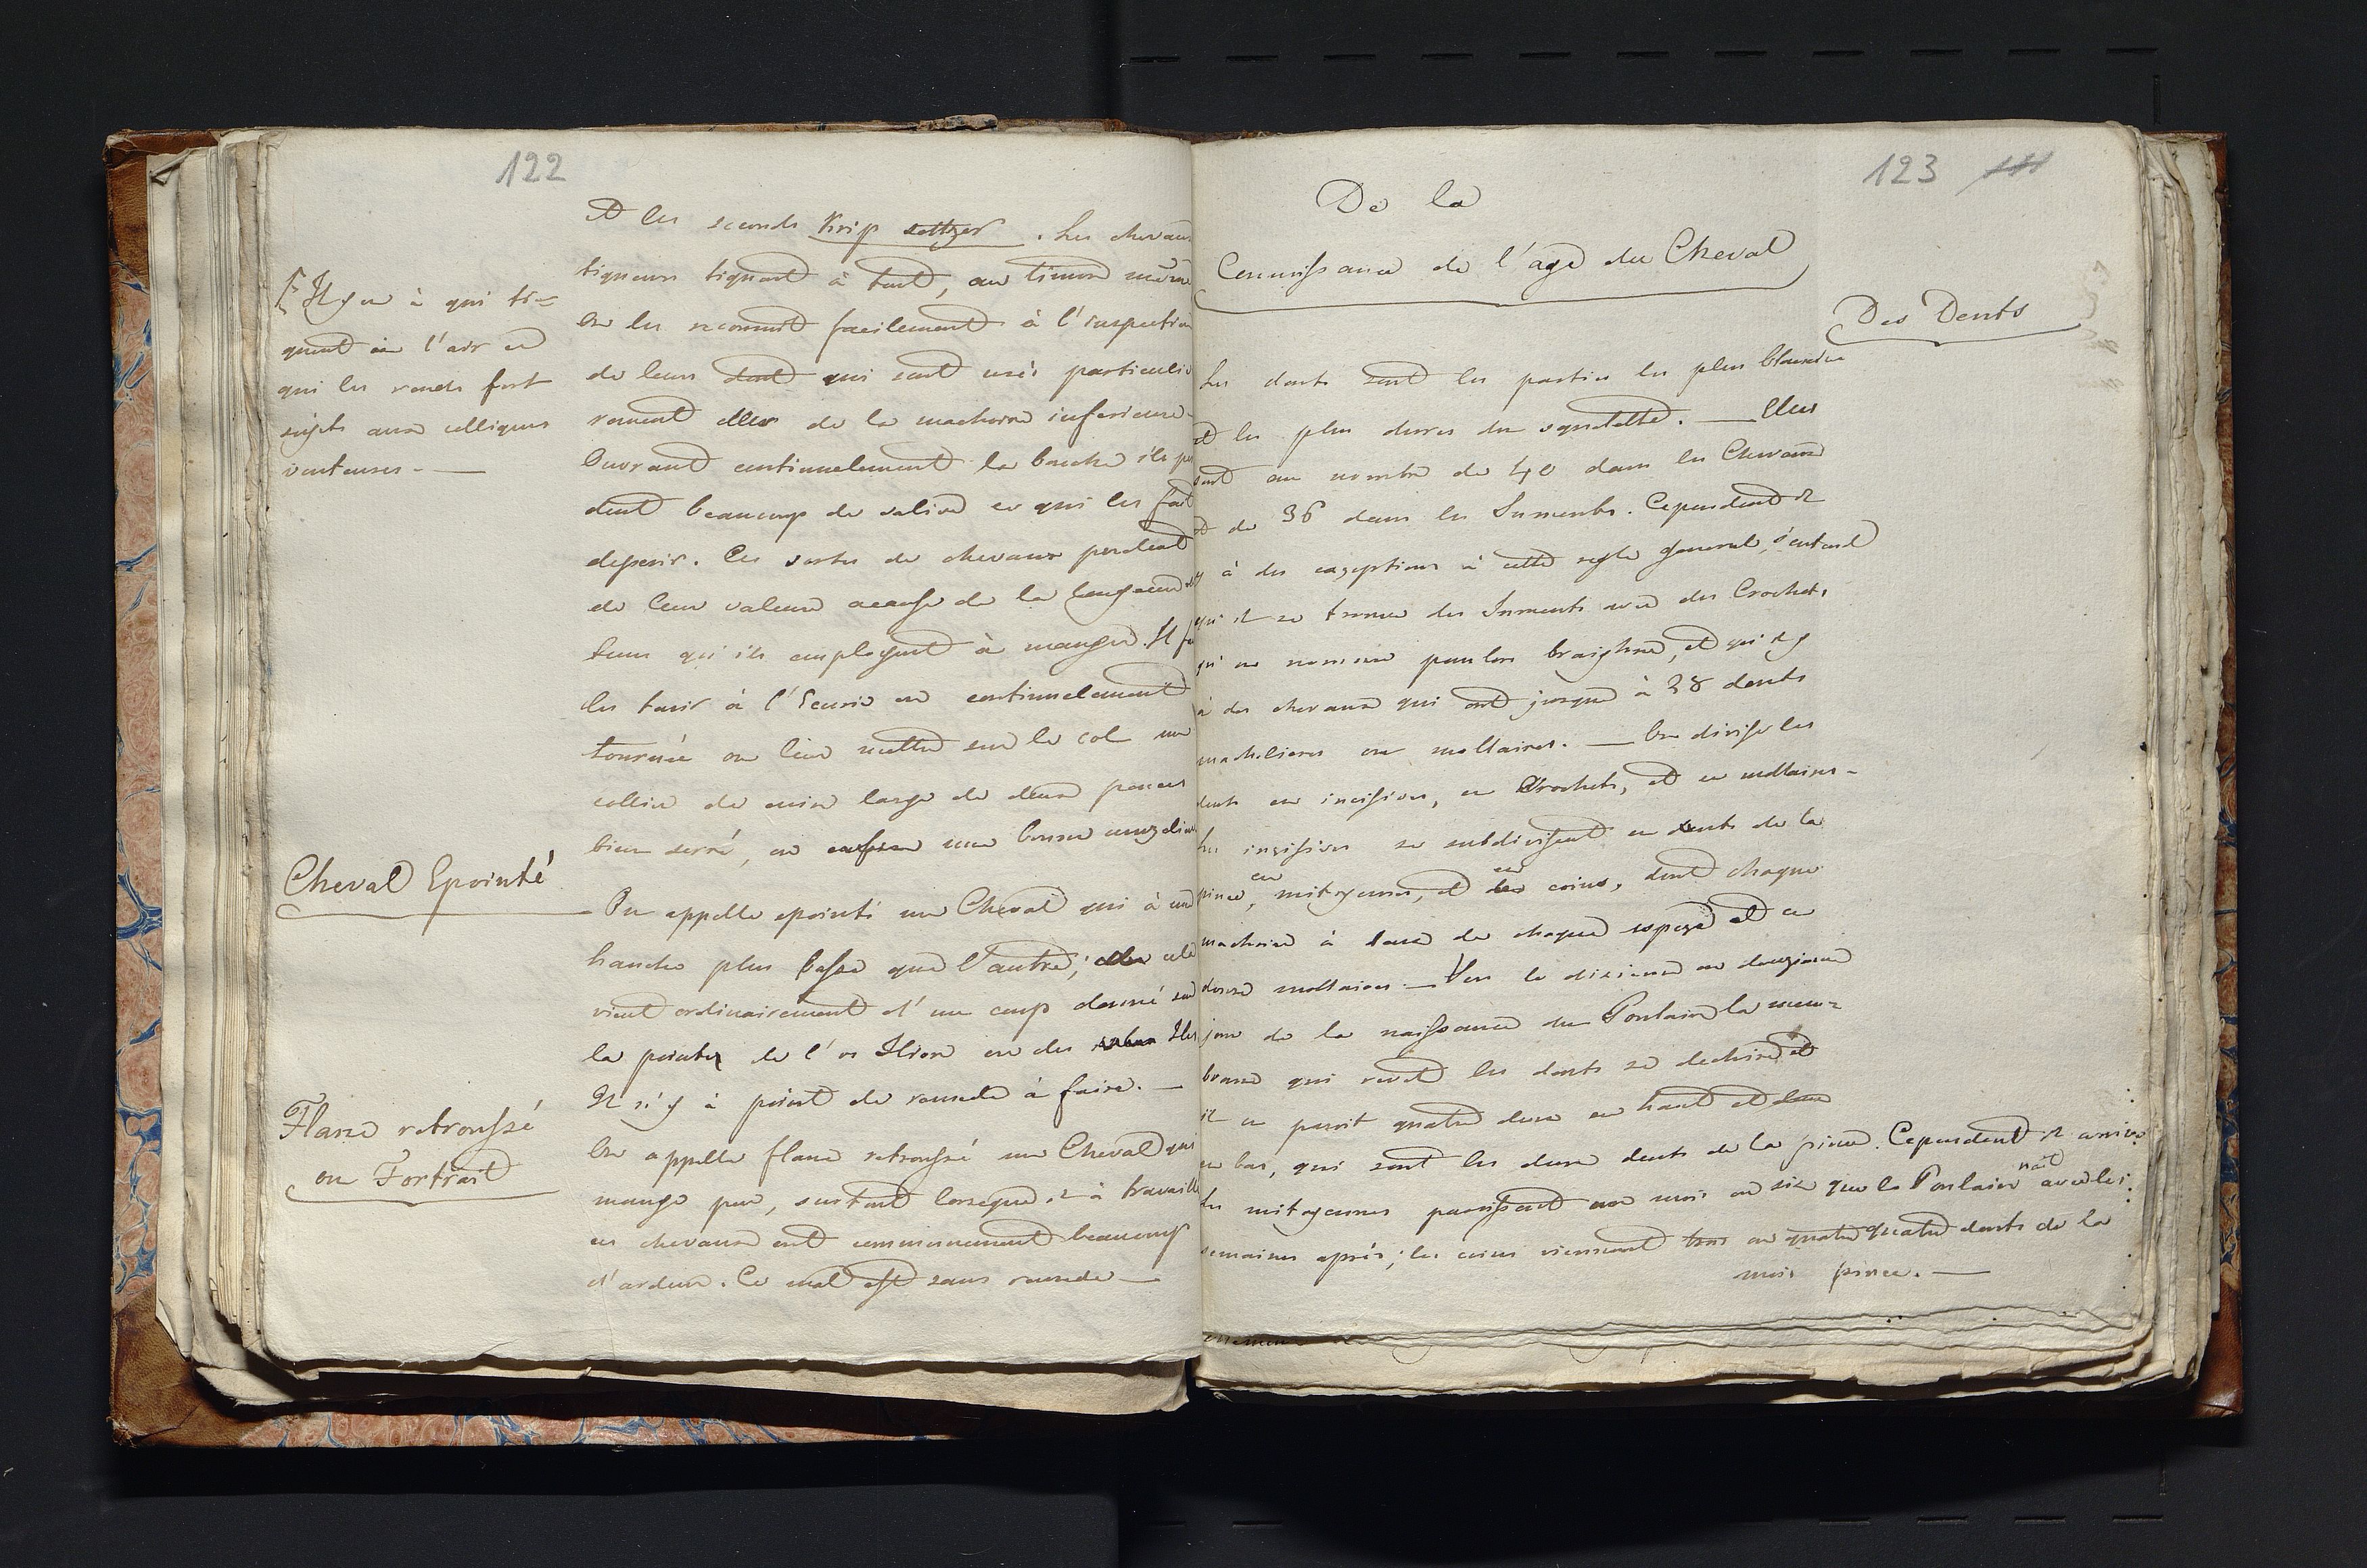 122
et les seconds Krip settzer. Les chevaux
tiqueurs tiquent à tout, au timon même
on les reconnoit facilement à l'inspection
de leurs dents qui sont usés particulie
rement celles de la machoire inferieure
Ouvrant continuelement la bouche ils per
dent beaucoup de salive ce qui les fait
deperir. Ces sortes de chevaux perdent
de leur valeur acause de la longueur du
tems qu'ils employent à manger. Il faut
les tenir à l'Ecurie en continuelement
tournée ou leur mettre sur le col un
collier de cuir large de deux pouces
bien serré, ou enfin une bonne muzeliere
¶ Il y en à qui ti=
quent en l'air ce
qui les rends fort
sujets aux colliques
venteuses. —
Cheval Epointé
On appelle epointé un Cheval qui à une
hanche plus basse que l'autre; cela
vient ordinairement d'un coup donné sur
la pointe de l'os Ilion ou des Iles
Il n'y à point de remede à faire. —
Flanc retroussé
ou Fortrait
On appelle flanc retroussé un Cheval qui
mange peu, surtout lorsque il à travaillé
ces chevaux ont communement beaucoup
d'ardeur. Ce mal est sans remede —
123
De la
Connoissance de l'age du Cheval
Des Dents
Les dents sont les parties les plus blanches
et les plus dures du squelette. — Elles
sont au nombre de 40 dans les Chevaux
et de 36 dans les Juments. Cependant il
y à des exceptions à cette regle general, s'entend
qu'il se trouve des Juments avec des Crochets,
qu'on nomme pour lors braighne, et qu'il y
à des chevaux qui ont jusque à 28 dents
machelieres ou mollaires. — On divise les
dents en incisives, en Crochets, et en mollaires —
Les incisives se subdivisent en dents de la
pince, en mitoyennes, et en coins, dont chaque
machoire à deux de chaque espece et
douze mollaires. — Vers le dixieme ou douzieme
jour de la naissance du Poulain la mem=
brane qui revet les dents se dechire et
il en paroit quatre deux en haut et deux
en bas, qui sont les deux dents de la pince. Cependant il arrive
Les mitoyennes paroissent un mois ou six que le Poulain nait avec les
semaines après; les coins viennent trois ou quatre quatre dents de la
mois pince. —